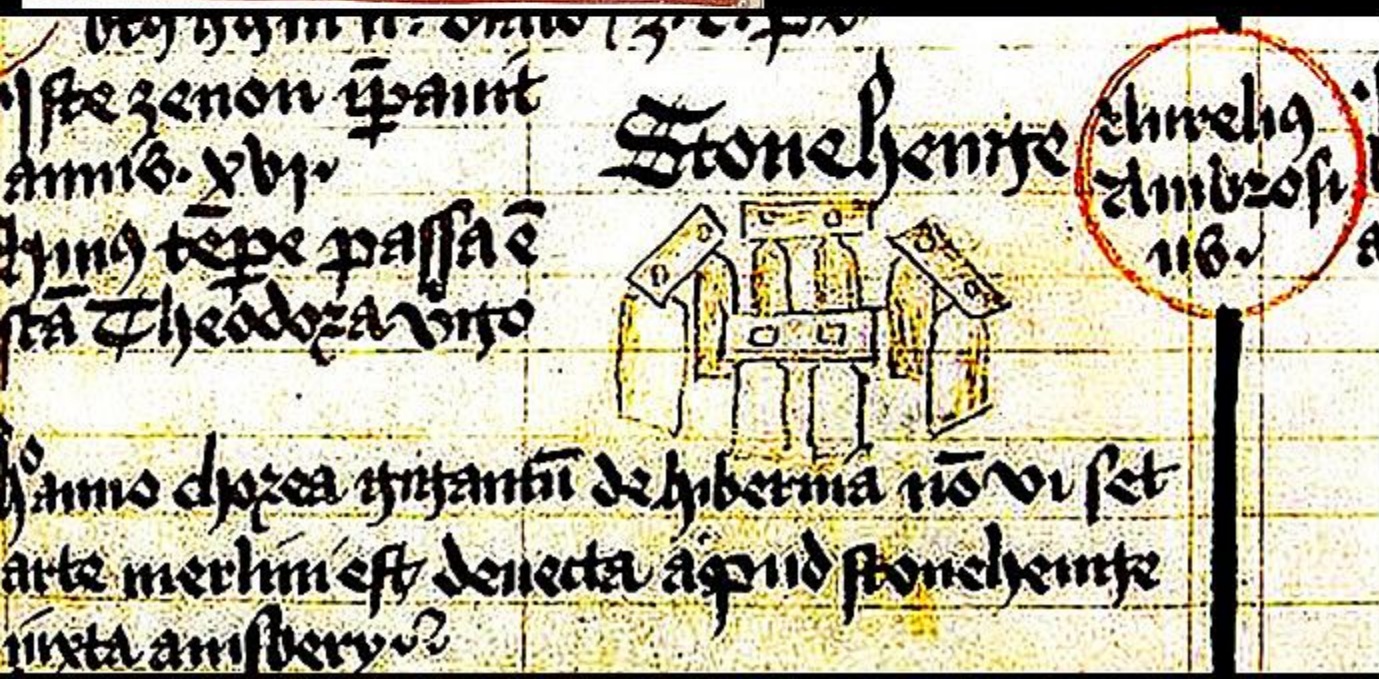 Iste zenon īp̄auit
annis. xvj.
hui9 tēpe passa ē
stā Theodora virgo
Stonehenge
Aureli9
Ambrosi
us.
hͦ anno chorea gigantū de hibernia nō vi set
arte merlini est deuecta apud stonehenge
iuxta amisbery